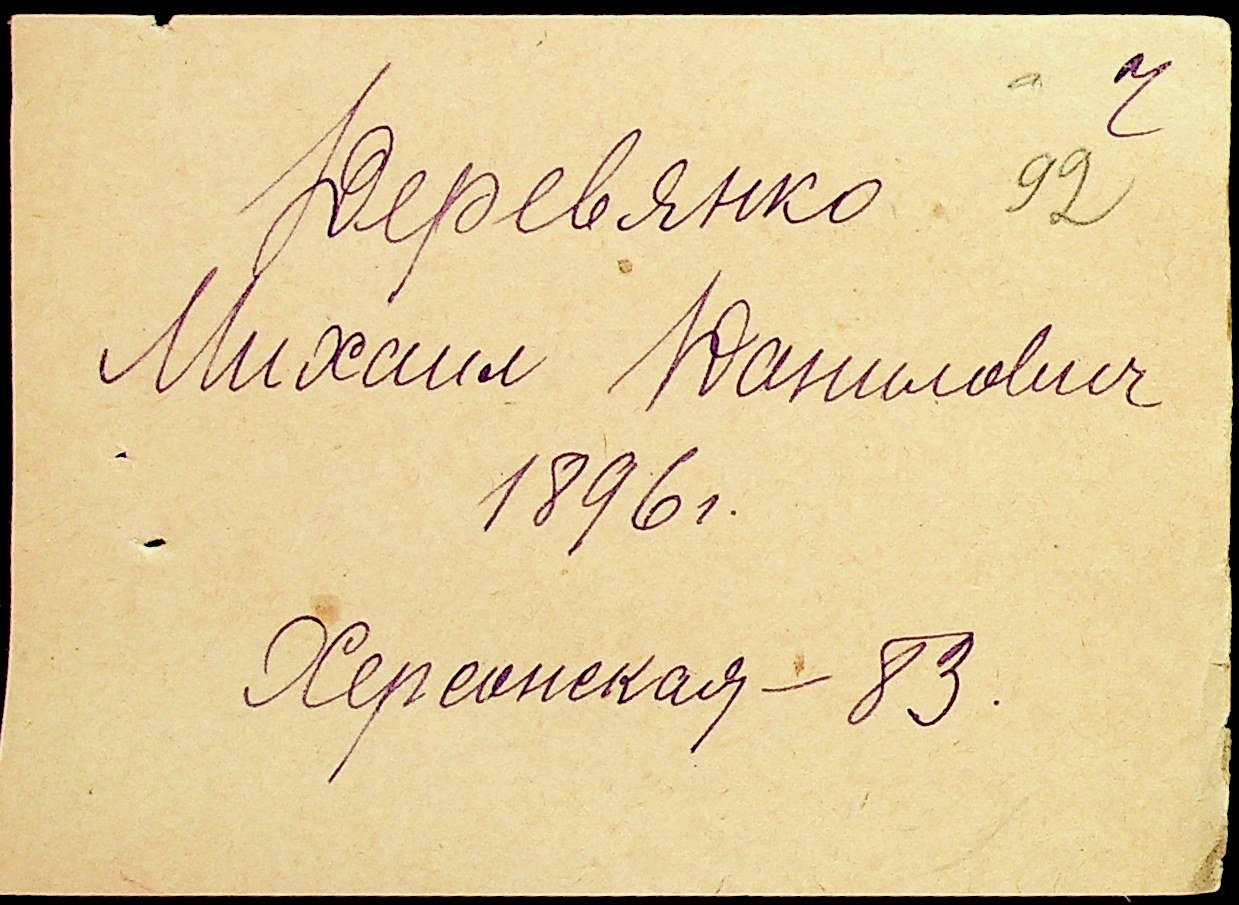 92
Деревянко
Михаил Данилович
1896 г.
Херсонская – 83.